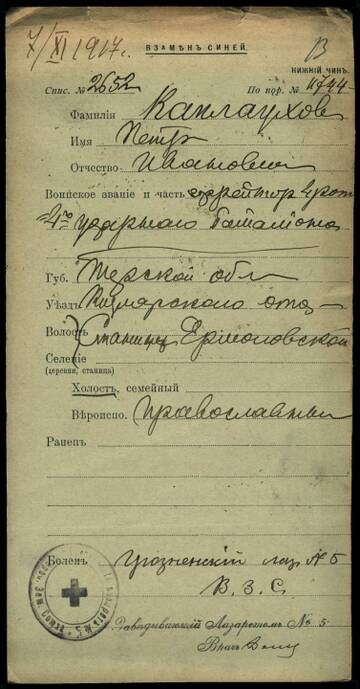 7/XI 1917г.
ВЗАМѢНЪ СИНЕЙ.
В
НИЖНІЙ ЧИНЪ.
Спис. № 2652
По пор. №
Фамилія Каплауховъ
Имя Петръ
Отчество Ивановичъ
Воинское званіе и часть ефрейторъ 4 роты
4го ударнаго баталіона
Губ. Терской обл
Уѣздъ Кизлярскаго отд
Волость Станицы Ермоловской
Селеніе
(деревня, станица)
Холостъ, семейный
Вѣроиспов. Православный
Раненъ
Боленъ Грозненскій лаз. № 5
В. З. С.
Завѣдывающій Лазаретомъ № 5
Врачъ